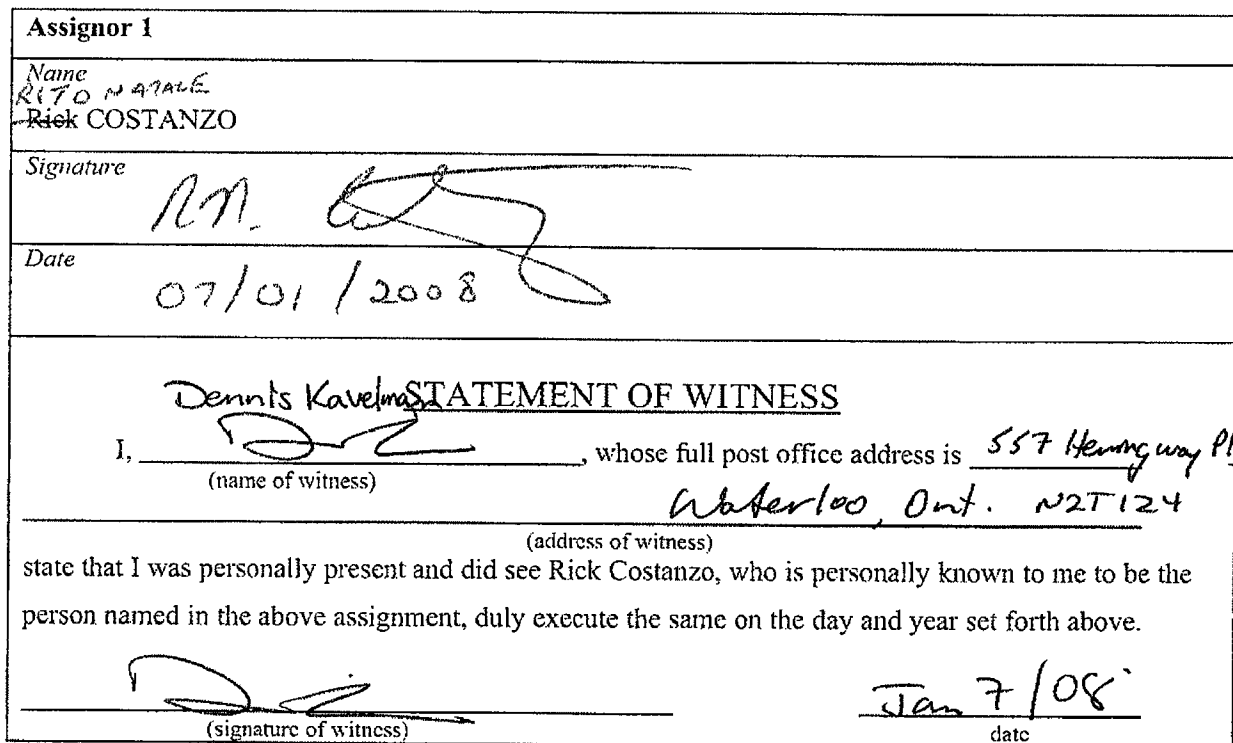 Assignor 1
Name
RITO NATALE
Rick COSTANZO
Signature
Date
07/01/2008
Dennis Kavelman STATEMENT OF WITNESS
I, , whose full post office address is 557 Hemingway Pl
(name of witness)
Waterloo, Ont. N2T1Z4
(address of witness)
state that I was personally present and did see Rick Costanzo, who is personally known to me to be the
person named in the above assignment, duly execute the same on the day and year set forth above.
Jan 7/08
(signature of witness) date